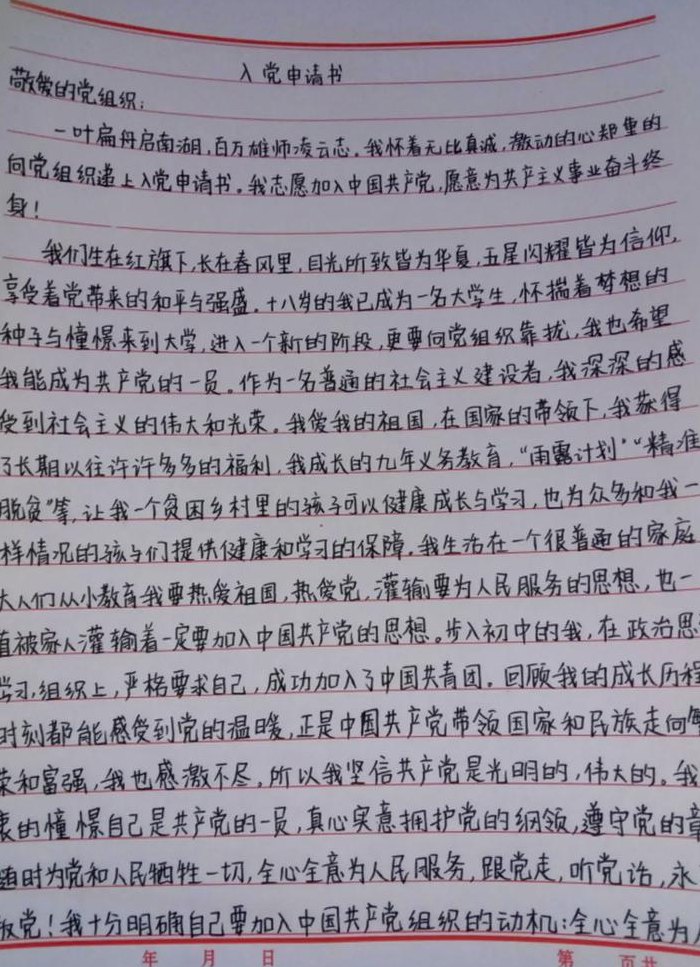 入党申请书
敬爱的党组织：
一叶扁舟启南湖，百万雄师凌云志。我怀着无比真诚，激动的心郑重的
向党组织递上入党申请书。我志愿加入中国共产党，愿意为共产主义事业奋斗终
身！
我们生在红旗下，长在春风里，目光所致皆为华夏，五星闪耀皆为信仰，
享受着党带来的和平与强盛。十八岁的我已成为一名大学生，怀揣着梦想的
种子与憧憬来到大学，进入一个新的阶段，更要向党组织靠扰，我也希望
我能成为共产党的一员。作为一名普通的社会主义建设者，我深深的感
受到社会主义的伟大和光荣。我爱我的祖国，在国家的带领下，我获得
了长期以往许许多多的福利，我成长的九年义务教育，“雨露计划”“精准
脱贫”等，让我一个贫困乡村里的孩子可以健康成长与学习，也为众多和我一
样情况的孩子们提供健康和学习的保障。我生活在一个很普通的家庭
大人们从小教育我要热爱祖国，热爱党，灌输要为人民服务的思想，也一
直被家人灌输着一定要加入中国共产党的思想。步入初中的我，在政治思
学习，组织上，严格要求自己，成功加入了中国共青团。回顾我的成长历程
时刻都能感受到党的温暖，正是中国共产党带领国家和民族走向繁
荣和富强，我也感激不尽。所以我坚信共产党是光明的，伟大的。我
衷的憧憬自己是共产党的一员，真心实意拥护党的纲领，遵守党的章
随时为党和人民牺牲一切，全心全意为人民服务，跟党走，听党话，永
叛党！我十分明确自己要加入中国共产党组织的动机：全心全意为人
年 月 日 第 页共